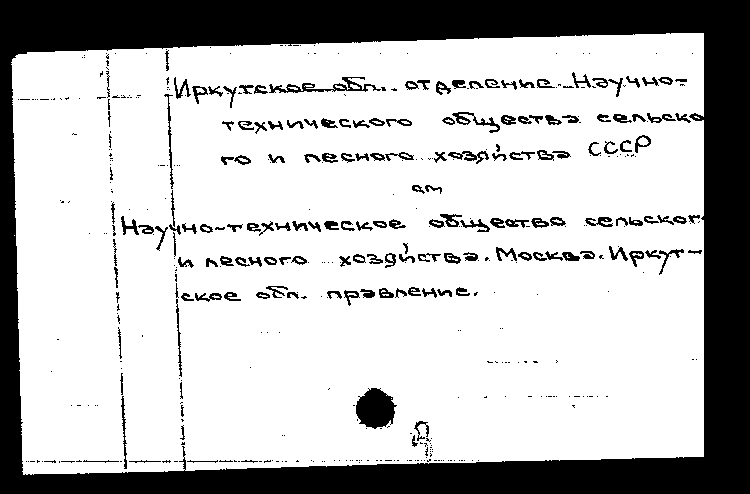 Иркутское обл. отделение Научно-
технического общества сельско
го и лесного хозяйства СССР
см
Научно-техническое общество сельског
и лесного хозяйства. Москва. Иркут-
ское обл. правление.